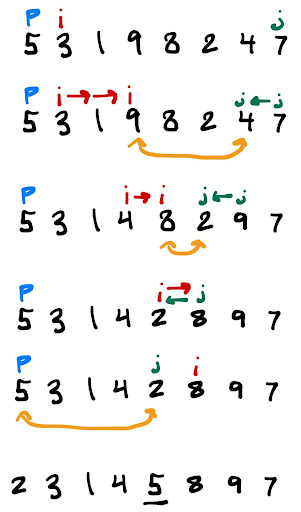 P i j
5 3 1 9 8 2 4 7
P i i j j
5 3 1 9 8 2 4 7
i i j j
P
5 3 1 4 8 2 9 7
i j
P
5 3 1 4 2 8 9 7
P j i
5 3 1 4 2 8 9 7
2 3 1 4 5 8 9 7